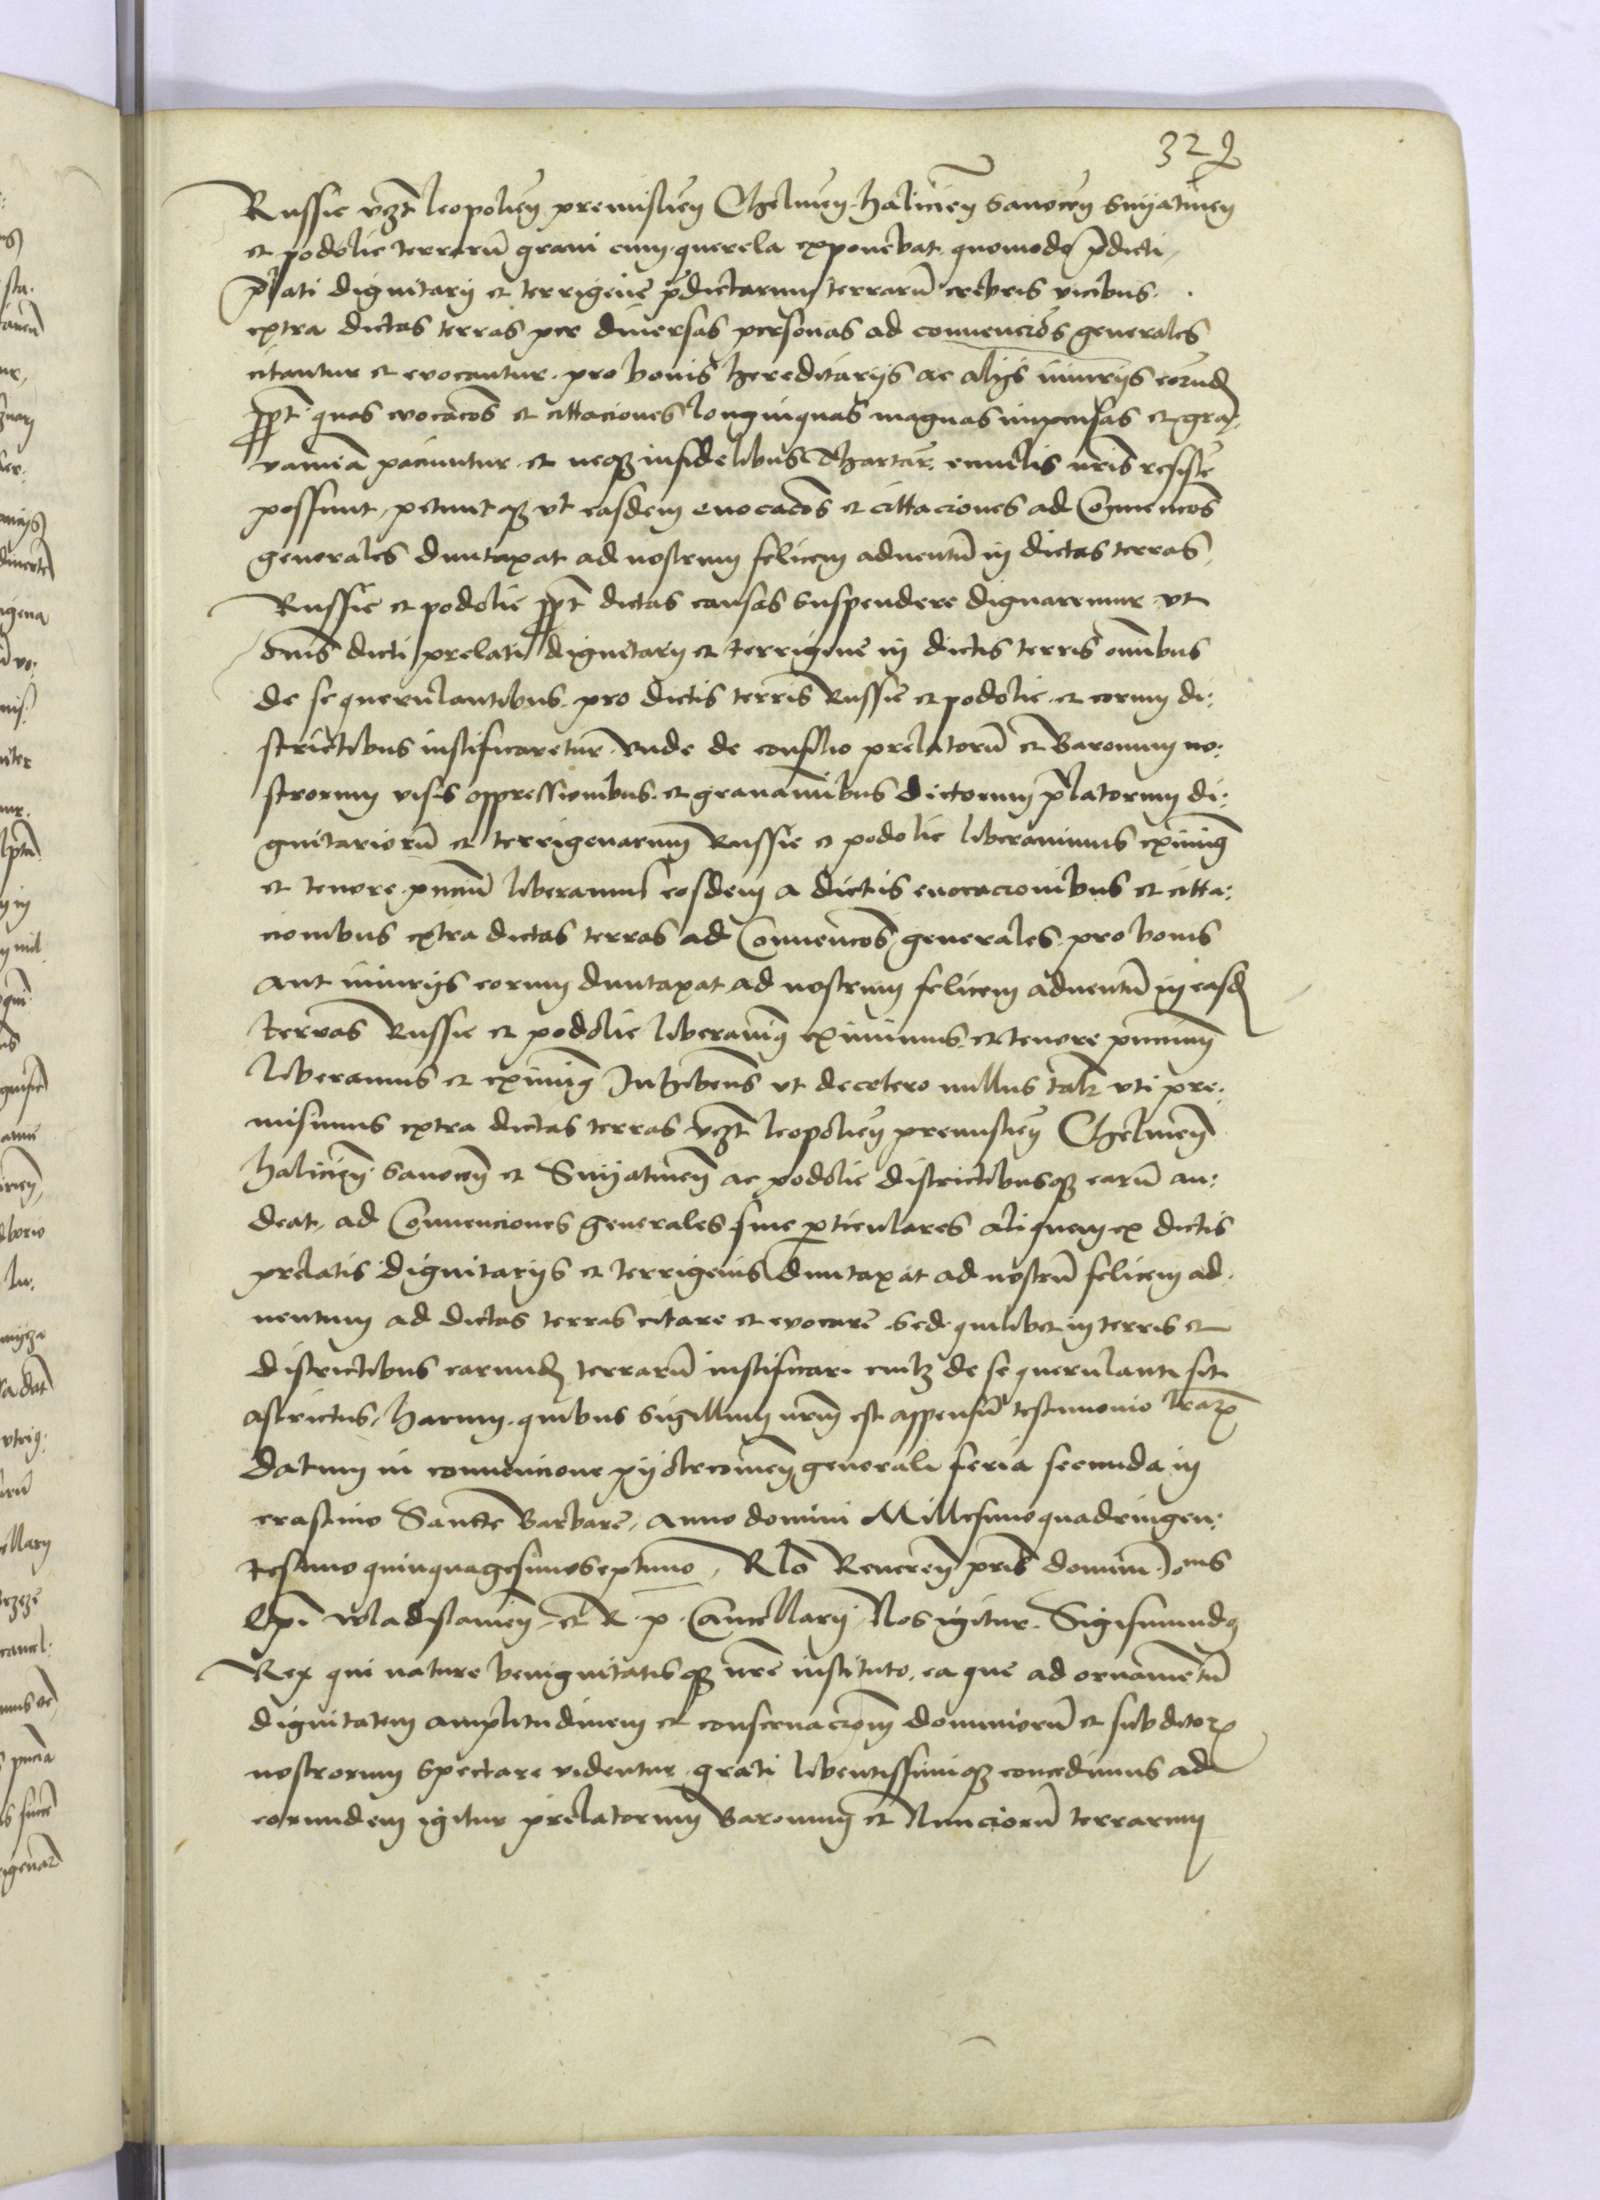 329
Russie vʒt leopolien̄ premislien̄ Chelmen̄ halicien̄ Sanocen̄ Snyatinen̄
et podolie terrarū graui cum querela exponebat quomodo p̄dicti
p̄lati dignitarij et terrigene p̄dictarum terrarū crebris vicibus
extra dictas terras per diuersas personas ad conuencio͞s generales
citantur et euocantur pro bonis hereditarijs ac alijs iniurijs eorund̄
pp̄t quas euocaco͞s et cittaciones longinquas magnas impensas et gra-
uamīa paciuntur et neqꝫ infidelibus Thartar̄ emulis nr̄is resistē
possunt, petuntqꝫ vt easdem euocaco͞s et cittaciones ad Conuenco͞s
generales duntaxat ad nostrum felicem aduentū in dictas terras
Russie et podolie pp̄t dictas causas suspendere dignaremur vt
om̄s dicti prelati dignitarij et terrigene in dictis terris om̄ibus
de se querulantibus pro dictis terris Russie et podolie et eorum di:
strictibus iustificaretur vnde de consilio prelatorū et Baronum no:
strorum visis oppressionibus et grauam̄ibus dictorum p̄latorum di:
gnitariorū et terrigenarum Russie et podolie liberauimus eximimꝰ
et tenore p̄nciū liberamus eosdem a dictis euocacionibus et citta:
cionibus extra dictas terras ad Conuenco͞s generales pro bonis
aut iniurijs eorum duntaxat ad nostrum felicem aduentū in easd̄
terras Russie et podolie liberauimꝰ eximimus et tenore p̄ncium
liberamus et eximimꝰ Inhibentes vt decetero nullus talr̄ vti pre:
misimus extra dictas terras vʒt leopolien̄ premislien̄ Chelmen̄
halicien̄ Sanocen̄ et Snyatinen̄ ac podolie districtibusqꝫ earū au:
deat, ad Conuenciones generales siue p̱ticulares aliquem ex dictis
prelatis dignitarijs et terrigenis duntaxat ad nostrū felicem ad
uentum ad dictas terras citare et euocare sed quilibet in terris et
districtibus earund̄ terrarū iustificari cuilꝫ de se querulanti sit
astrictus, harum quibus sigillum nr̄m est appensū testimonio lr̄arꝝ
datum in conuencione pyotrcouien̄ generali feria secunda in
crastino Sancte Barbare, anno domini Millesimoquadringen:
tesimo quinquagesimoseptimo, Rlo͞ Reueren̄ pr̄is domini Joⁿⁱˢ
Ep̄i wladislauien̄ et R. p. Cancellarij Nos igitur Sigismundꝰ
Rex qui nature benignitatisqꝫ nr̄e instituto, ea que ad ornamētū
dignitatem amplitudinem et conseruaciōm dominiorū et subditorꝝ
nostrorum spectare videntur grati libentissimiqꝫ concedimus ad
eorundem igitur prelatorum Baronum et Nunciorū terrarum